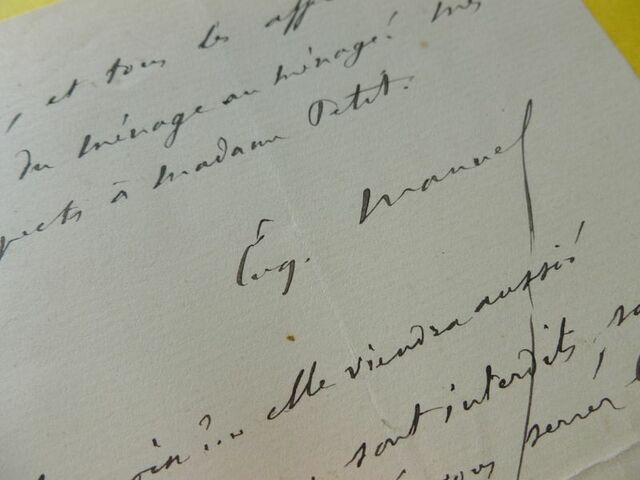 , et tous les
du ménage au ménage! mes
à madame Petit.
Eug. Manuel
elle viendra aussi!
sont interdits,
serrer